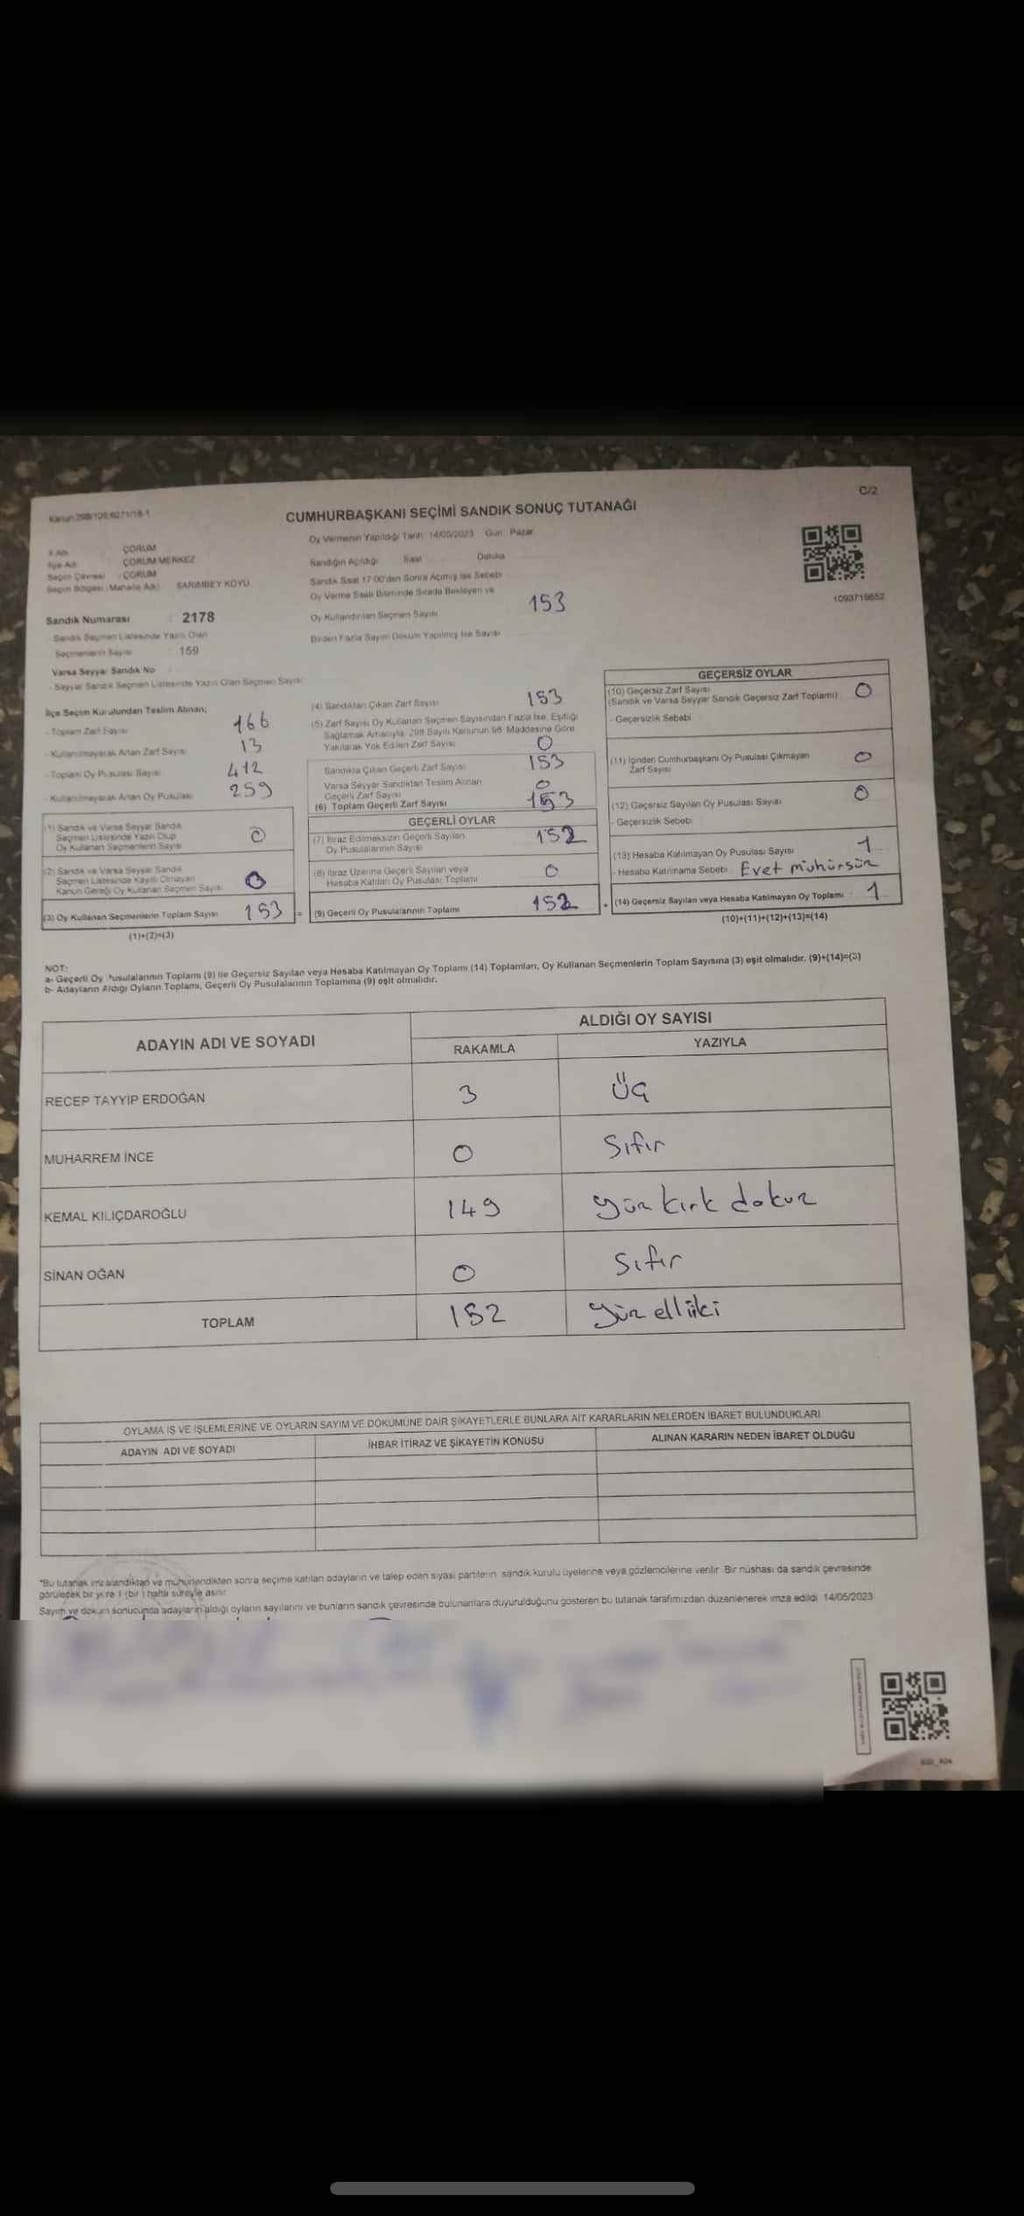 Kanun:298/105;6271/18-1
C/2
CUMHURBAŞKANI SEÇİMİ SANDIK SONUÇ TUTANAĞI
İl Adı ÇORUM
İlçe Adı ÇORUM MERKEZ
Seçim Çevresi : ÇORUM
Seçim Bölgesi (Mahalle Adı) SARIMBEY KÖYÜ
Sandık Numarası : 2178
- Sandık Seçmen Listesinde Yazılı Olan
Seçmenlerin Sayısı : 159
Varsa Seyyar Sandık No
- Seyyar Sandık Seçmen Listesinde Yazılı Olan Seçmen Sayısı
Oy Vermenin Yapıldığı Tarih 14/05/2023 Gün: Pazar
Sandığın Açıldığı Saat Dakika
Sandık Saat 17:00'den Sonra Açılmış İse Sebebi
Oy Verme Saati Bitiminde Sırada Bekleyen ve
Oy Kullandırılan Seçmen Sayısı 153
Birden Fazla Sayım Döküm Yapılmış İse Sayısı
1093718652
İlçe Seçim Kurulundan Teslim Alınan;
- Toplam Zarf Sayısı 166
- Kullanılmayarak Artan Zarf Sayısı 13
- Toplam Oy Pusulası Sayısı 412
- Kullanılmayarak Artan Oy Pusulası 259
(1) Sandık ve Varsa Seyyar Sandık
Seçmen Listesinde Yazılı Olup
Oy Kullanan Seçmenlerin Sayısı 0
(2) Sandık ve Varsa Seyyar Sandık
Seçmen Listesinde Kayıtlı Olmayan
Kanun Gereği Oy Kullanan Seçmen Sayısı 0
(3) Oy Kullanan Seçmenlerin Toplam Sayısı 153 =
(1)+(2)=(3)
(4) Sandıktan Çıkan Zarf Sayısı 153
(5) Zarf Sayısı Oy Kullanan Seçmen Sayısından Fazla İse, Eşitliği
Sağlamak Amacıyla, 298 Sayılı Kanunun 98. Maddesine Göre
Yakılarak Yok Edilen Zarf Sayısı 0
Sandıkta Çıkan Geçerli Zarf Sayısı 153
Varsa Seyyar Sandıktan Teslim Alınan
Geçerli Zarf Sayısı 0
(6) Toplam Geçerli Zarf Sayısı 153
GEÇERLİ OYLAR
(7) İtiraz Edilmeksizin Geçerli Sayılan
Oy Pusulalarının Sayısı 152
(8) İtiraz Üzerine Geçerli Sayılan veya
Hesaba Katılan Oy Pusulası Toplamı 0
(9) Geçerli Oy Pusulalarının Toplamı 152 +
GEÇERSİZ OYLAR
(10) Geçersiz Zarf Sayısı
(Sandık ve Varsa Seyyar Sandık Geçersiz Zarf Toplamı) 0
- Geçersizlik Sebebi
(11) İçinden Cumhurbaşkanı Oy Pusulası Çıkmayan
Zarf Sayısı 0
(12) Geçersiz Sayılan Oy Pusulası Sayısı 0
- Geçersizlik Sebebi
(13) Hesaba Katılmayan Oy Pusulası Sayısı 1
- Hesaba Katılmama Sebebi Evet mühürsüz
(14) Geçersiz Sayılan veya Hesaba Katılmayan Oy Toplamı 1
(10)+(11)+(12)+(13)=(14)
NOT:
a- Geçerli Oy Pusulalarının Toplamı (9) ile Geçersiz Sayılan veya Hesaba Katılmayan Oy Toplamı (14) Toplamları, Oy Kullanan Seçmenlerin Toplam Sayısına (3) eşit olmalıdır. (9)+(14)=(3)
b- Adayların Aldığı Oyların Toplamı, Geçerli Oy Pusulalarının Toplamına (9) eşit olmalıdır.
ADAYIN ADI VE SOYADI
ALDIĞI OY SAYISI
RAKAMLA YAZIYLA
RECEP TAYYİP ERDOĞAN 3 Üç
MUHARREM İNCE 0 Sıfır
KEMAL KILIÇDAROĞLU 149 yüz kırk dokuz
SİNAN OĞAN 0 Sıfır
TOPLAM 152 yüz elliiki
OYLAMA İŞ VE İŞLEMLERİNE VE OYLARIN SAYIM VE DÖKÜMÜNE DAİR ŞİKAYETLERLE BUNLARA AİT KARARLARIN NELERDEN İBARET BULUNDUKLARI
ADAYIN ADI VE SOYADI İHBAR İTİRAZ VE ŞİKAYETİN KONUSU ALINAN KARARIN NEDEN İBARET OLDUĞU
*Bu tutanak imzalandıktan ve mühürlendikten sonra seçime katılan adayların ve talep eden siyasi partilerin sandık kurulu üyelerine veya gözlemcilerine verilir. Bir nüshası da sandık çevresinde
görülecek bir yere 1 (bir) hafta süreyle asılır.
Sayım ve döküm sonucunda adayların aldığı oyların sayılarını ve bunların sandık çevresinde bulunanlara duyurulduğunu gösteren bu tutanak tarafımızdan düzenlenerek imza edildi. 14/05/2023